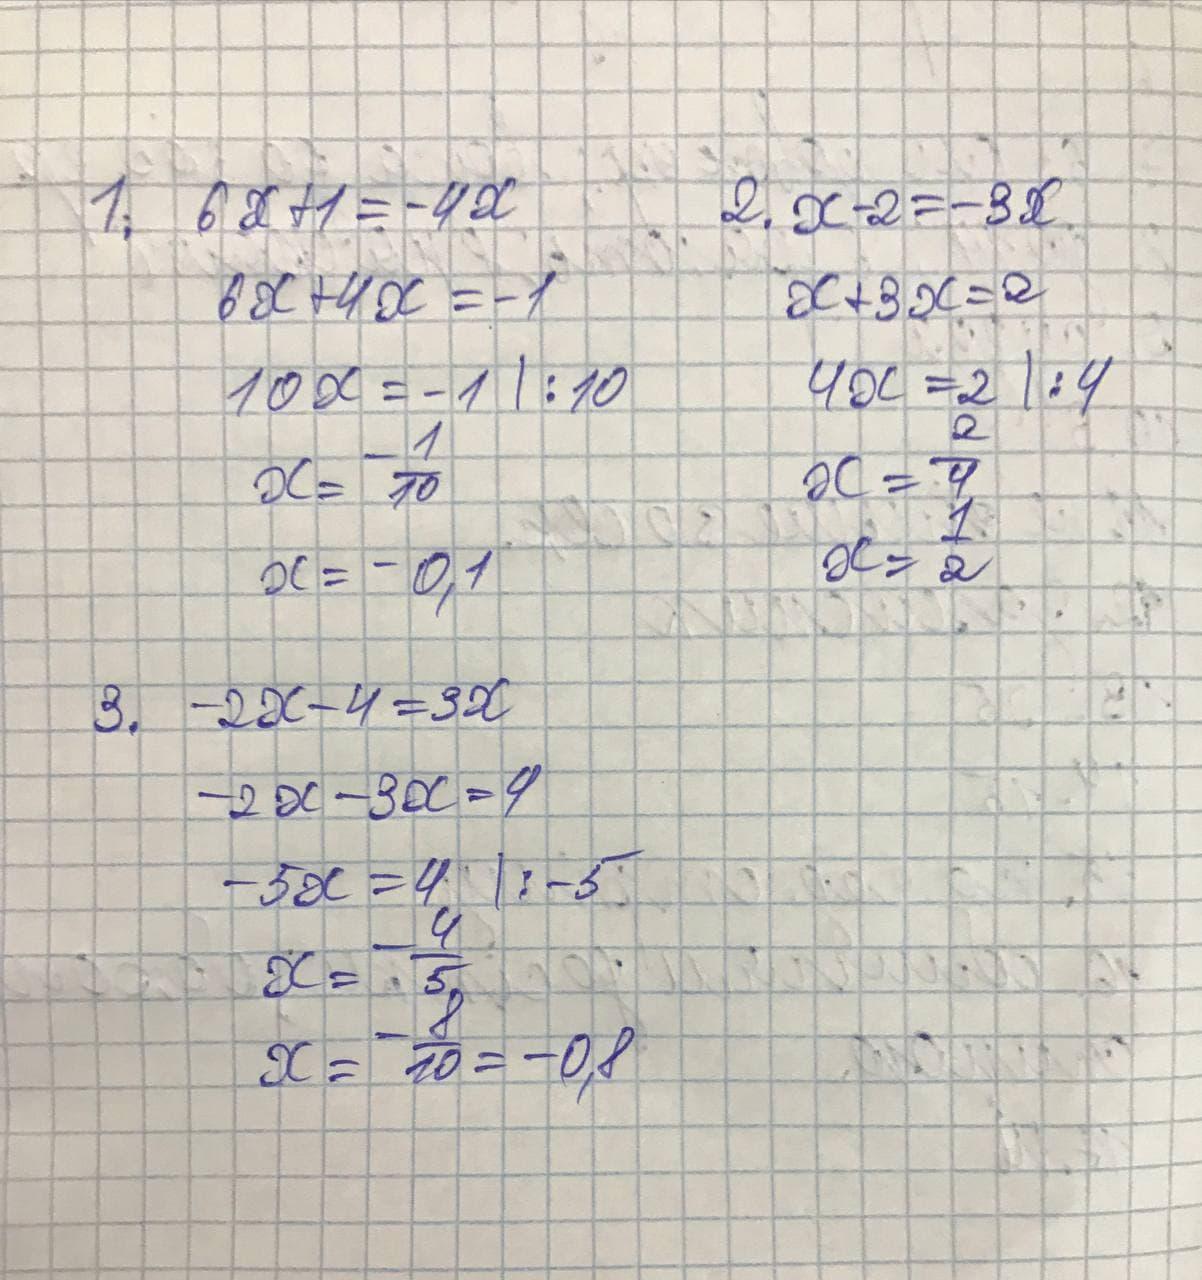 1. 6x+1=-4x
6x+4x=-1
10x=-1 |:10
x= -1/10
x= -0,1
2. x-2=-3x
x+3x=2
4x=2 |:4
x= 2/4
x= 1/2
3. -2x-4=3x
-2x-3x=4
-5x=4 |:-5
x= -4/5
x= -8/10 = -0,8